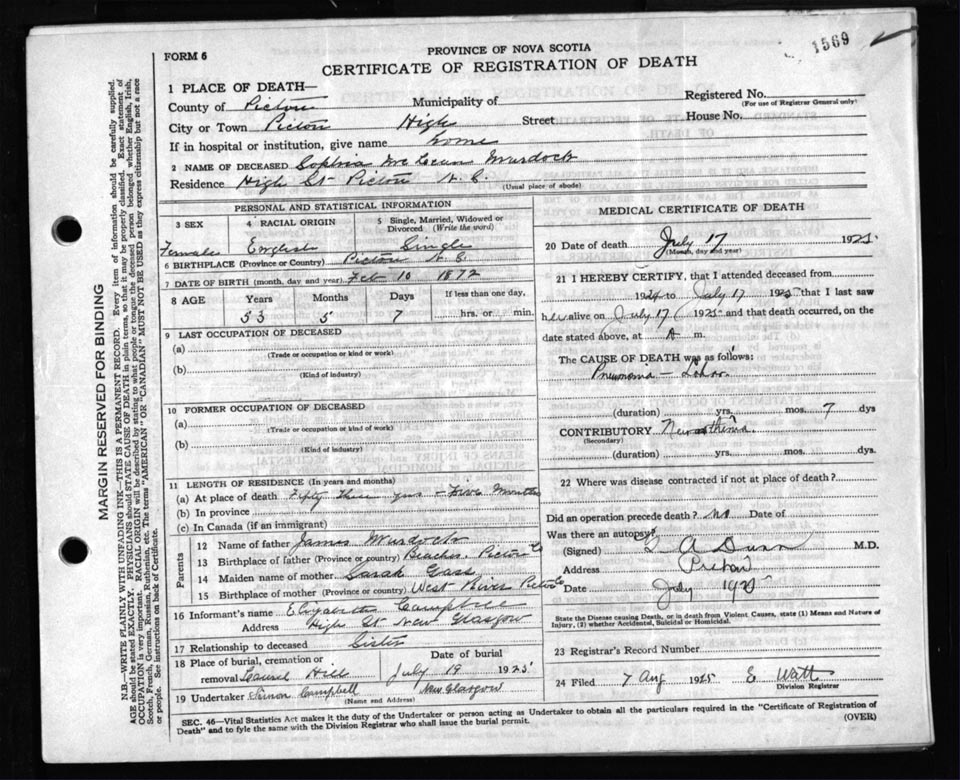 1569
FORM 6
PROVINCE OF NOVA SCOTIA
CERTIFICATE OF REGISTRATION OF DEATH
1 PLACE OF DEATH—
County of Pictou Municipality of
Registered No.
(For use of Registrar General only)
City or Town Pictou High Street House No.
If in hospital or institution, give name home
2 NAME OF DECEASED Sophia McLean Murdoch
Residence High St Pictou N.S.
(Usual place of abode)
PERSONAL AND STATISTICAL INFORMATION
3 SEX 4 RACIAL ORIGIN 5 Single, Married, Widowed or Divorced (Write the word)
Female English Single
6 BIRTHPLACE (Province or Country) Pictou N.S.
7 DATE OF BIRTH (month, day and year) Feb 10 1872
8 AGE Years Months Days If less than one day,
53 5 7 hrs. or min.
9 LAST OCCUPATION OF DECEASED
(a)
(Trade or occupation or kind or work)
(b)
(Kind of industry)
10 FORMER OCCUPATION OF DECEASED
(a)
(Trade or occupation or kind of work)
(b)
(Kind of industry)
11 LENGTH OF RESIDENCE (In years and months)
(a) At place of death Fifty three yrs - Five Months
(b) In province
(c) In Canada (if an immigrant)
Parents
12 Name of father James Murdoch
13 Birthplace of father (Province or country) Beaches, Pictou Co
14 Maiden name of mother Sarah Gass
15 Birthplace of mother (Province or country) West River Pictou Co
16 Informant's name Elizabeth Campbell
Address High St New Glasgow
17 Relationship to deceased Sister
18 Place of burial, cremation or removal Laurel Hill
Date of burial
July 19 1925
19 Undertaker Simon Campbell New Glasgow
(Name and Address)
MEDICAL CERTIFICATE OF DEATH
20 Date of death July 17 1925
(Month, day and year)
21 I HEREBY CERTIFY, that I attended deceased from
1924 to July 17 1925 that I last saw
her alive on July 17 1925 and that death occurred, on the
date stated above, at A m.
The CAUSE OF DEATH was as follows:
Pneumonia - Lobar
(duration) yrs. mos. 7 dys
CONTRIBUTORY
(Secondary)
(duration) yrs. mos. dys.
22 Where was disease contracted if not at place of death?
Did an operation precede death? no Date of
Was there an autopsy?
(Signed) A Dunn M.D.
Address Pictou
Date July 1925
State the Disease causing Death, or in death from Violent Causes, state (1) Means and Nature of Injury, (2) whether Accidental, Suicidal or Homicidal.
23 Registrar's Record Number
24 Filed 7 Aug 1925 E Watt
Division Registrar
SEC. 46—Vital Statistics Act makes it the duty of the Undertaker or person acting as Undertaker to obtain all the particulars required in the "Certificate of Registration of
Death" and to fyle the same with the Division Registrar who shall issue the burial permit.
(OVER)
MARGIN RESERVED FOR BINDING
N.B.—WRITE PLAINLY WITH UNFADING INK—THIS IS A PERMANENT RECORD. Every item of information should be carefully supplied.
AGE should be stated EXACTLY. PHYSICIANS should STATE CAUSE OF DEATH in plain terms, so that it may be properly classified. Exact statement of
OCCUPATION is very important. RACIAL ORIGIN will be described by stating to what people or tongue the deceased person belonged, whether English, Irish,
Scotch, French, German, Russian, Ruthenian, etc. The terms "AMERICAN" OR "CANADIAN" MUST NOT BE USED as they express citizenship but not a race
or people. See instructions on back of Certificate.